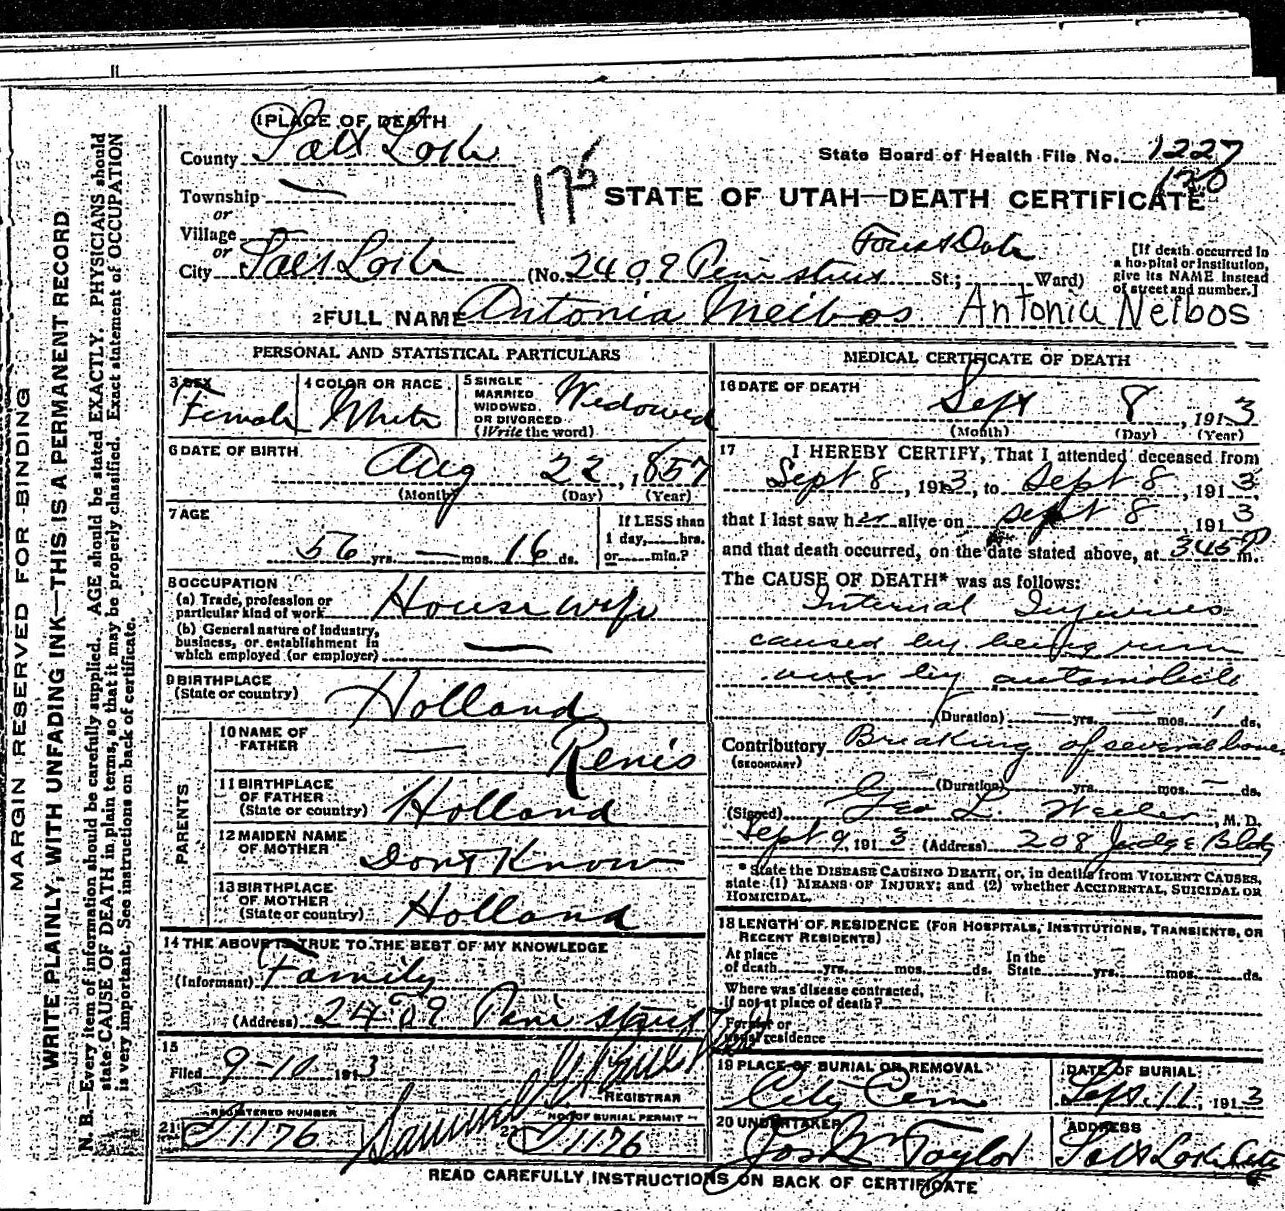 MARGIN RESERVED FOR BINDING
WRITE PLAINLY, WITH UNFADING INK—THIS IS A PERMANENT RECORD
N. B.—Every item of information should be carefully supplied. AGE should be stated EXACTLY. PHYSICIANS should
state CAUSE OF DEATH in plain terms, so that it may be properly classified. Exact statement of OCCUPATION
is very important. See instructions on back of certificate.
1 PLACE OF DEATH
County Salt Lake
State Board of Health File No. 1227
175
120
Township —
STATE OF UTAH—DEATH CERTIFICATE
or
Village
or
City Salt Lake (No. 2409 St.; Ward)
[If death occurred in
a hospital or institution,
give its NAME instead
of street and number.]
2 FULL NAME Antonia Meibos Antonia Neibos
PERSONAL AND STATISTICAL PARTICULARS
3 SEX
Female
4 COLOR OR RACE
White
5 SINGLE
MARRIED
WIDOWED
OR DIVORCED
(Write the word)
Widowed
6 DATE OF BIRTH
Aug 22, 1857
(Month) (Day) (Year)
7 AGE
56 yrs. — mos. 16 ds.
If LESS than
1 day, hrs.
or min.?
8 OCCUPATION
(a) Trade, profession or
particular kind of work House wife
(b) General nature of industry,
business, or establishment in
which employed (or employer) —
9 BIRTHPLACE
(State or country) Holland
PARENTS
10 NAME OF
FATHER — Renis
11 BIRTHPLACE
OF FATHER
(State or country) Holland
12 MAIDEN NAME
OF MOTHER Dont Know
13 BIRTHPLACE
OF MOTHER
(State or country) Holland
14 THE ABOVE IS TRUE TO THE BEST OF MY KNOWLEDGE
(Informant) Family
(Address) 2409
15
Filed 9-10 1913
REGISTRAR
REGISTERED NUMBER
21 D 1176
NO. OF BURIAL PERMIT
22 D 1176
MEDICAL CERTIFICATE OF DEATH
16 DATE OF DEATH
Sept 8, 1913
(Month) (Day) (Year)
17 I HEREBY CERTIFY, That I attended deceased from
Sept 8, 1913, to Sept 8, 1913,
that I last saw her alive on Sept 8, 1913
and that death occurred, on the date stated above, at 345 P m.
The CAUSE OF DEATH* was as follows:
Internal Injuries
caused by being run
over by automobile
(Duration) — yrs. — mos. 1 ds.
Contributory Breaking of several bones
(SECONDARY)
(Duration) yrs. mos. — ds.
(Signed) Geo L. Weiler, M. D.
Sept 9, 1913 (Address) 208 Judge Bldg
* State the DISEASE CAUSING DEATH, or, in deaths from VIOLENT CAUSES,
state (1) MEANS OF INJURY; and (2) whether ACCIDENTAL, SUICIDAL OR
HOMICIDAL.
18 LENGTH OF RESIDENCE (FOR HOSPITALS, INSTITUTIONS, TRANSIENTS, OR
RECENT RESIDENTS)
At place
of death yrs. mos. ds.
In the
State yrs. mos. ds.
Where was disease contracted,
If not at place of death?
Former or
usual residence
19 PLACE OF BURIAL OR REMOVAL
City Cem
DATE OF BURIAL
Sept. 11, 1913
20 UNDERTAKER
Jos Wm Taylor
ADDRESS
Salt Lake City
READ CAREFULLY INSTRUCTIONS ON BACK OF CERTIFICATE